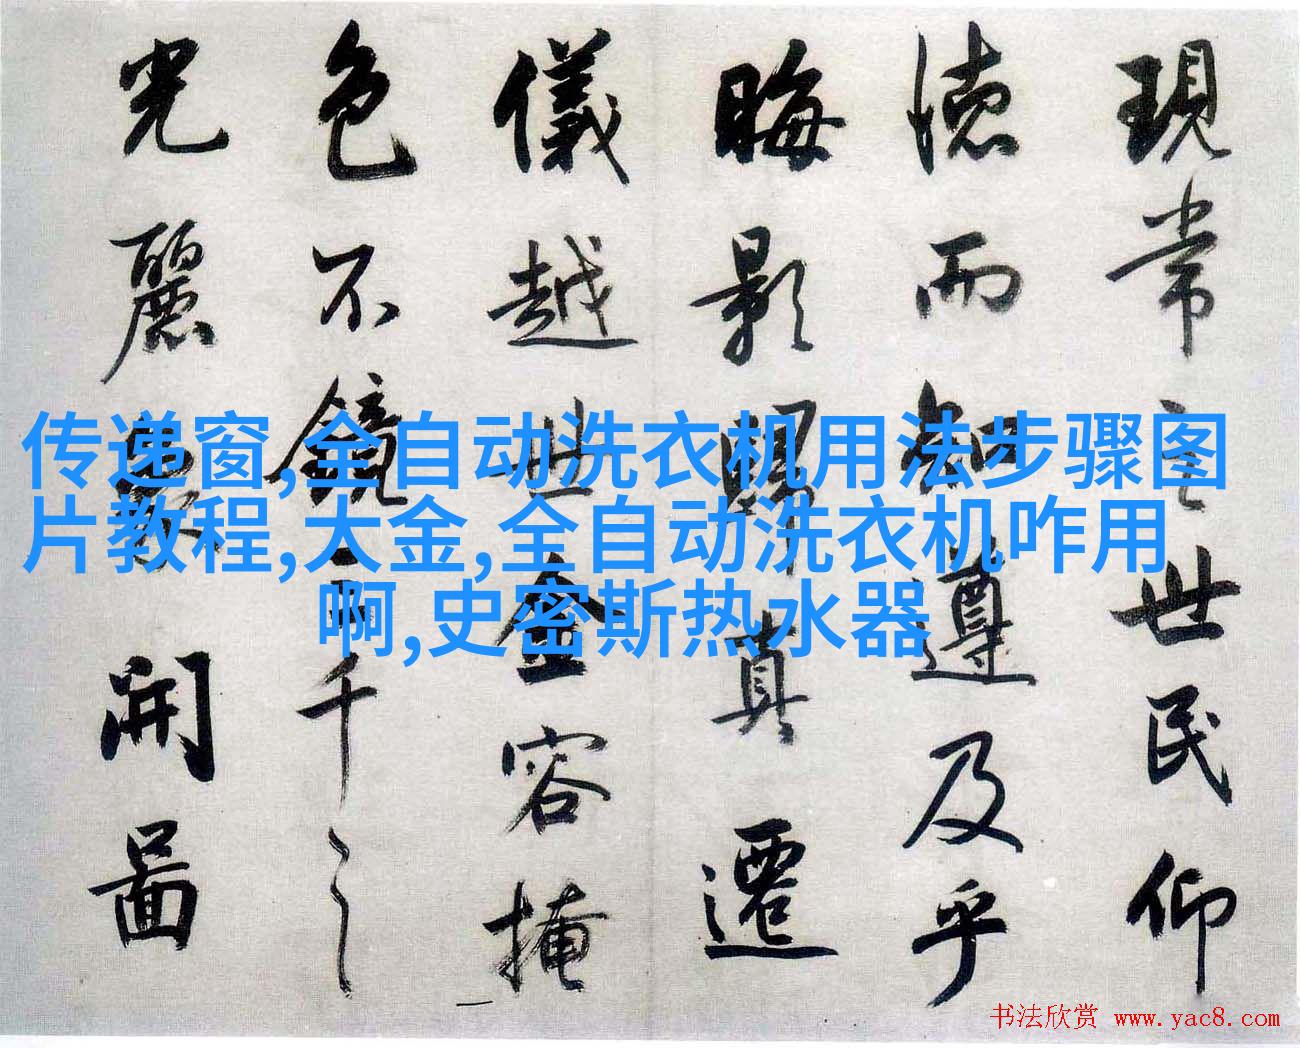 現常之世民仰
徳而知遵及乎
晦影歸真遷
儀越世金容掩
色不鏡三千之
光麗象開圖
传递窗,全自动洗衣机用法步骤图
片教程,大金,全自动洗衣机咋用
啊,史密斯热水器
书法欣赏 www.yac8.com